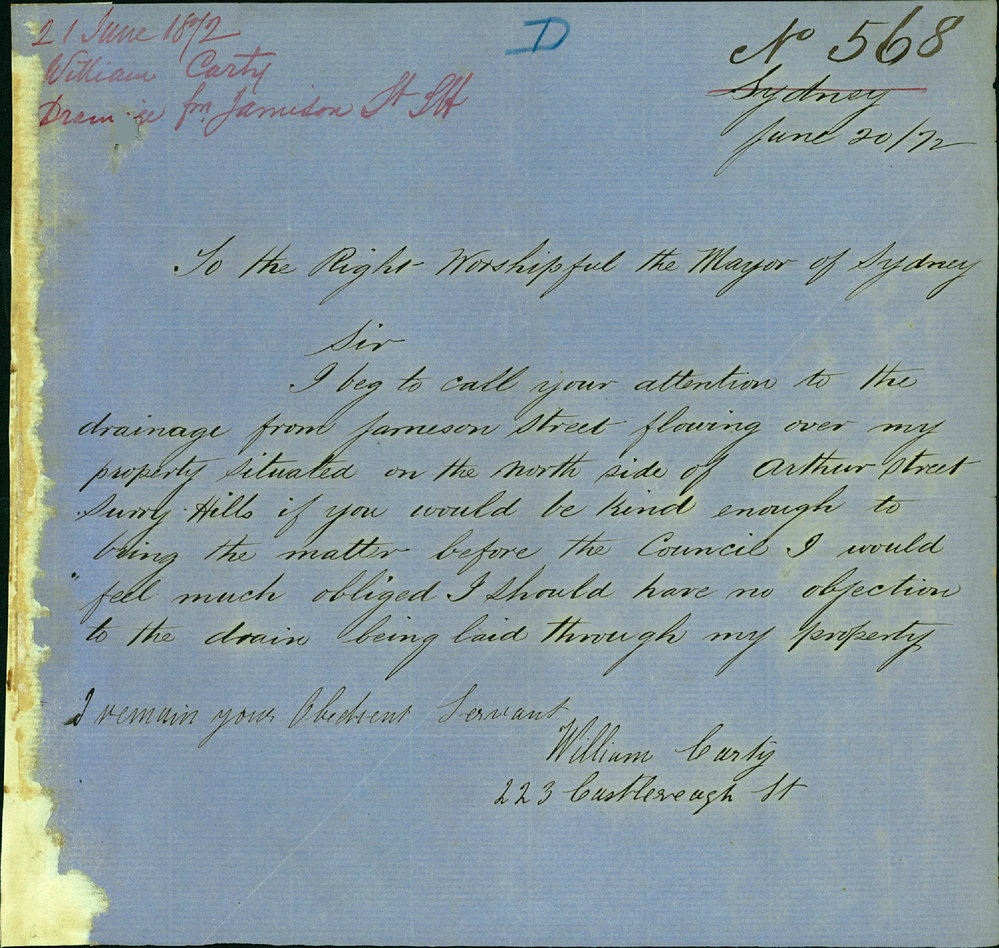 21 June 1872
William Carty
Drainage fm Jamison St SH
D
No 568
Sydney
June 20/72
To the Right Worshipful the Mayor of Sydney
Sir
I beg to call your attention to the
drainage from Jameson Street flowing over my
property situated on the north side of Arthur Street
Surry Hills if you would be kind enough to
bring the matter before the Council I would
feel much obliged I should have no objection
to the drain being laid through my property
I remain your Obedient Servant
William Carty
223 Castlereagh St